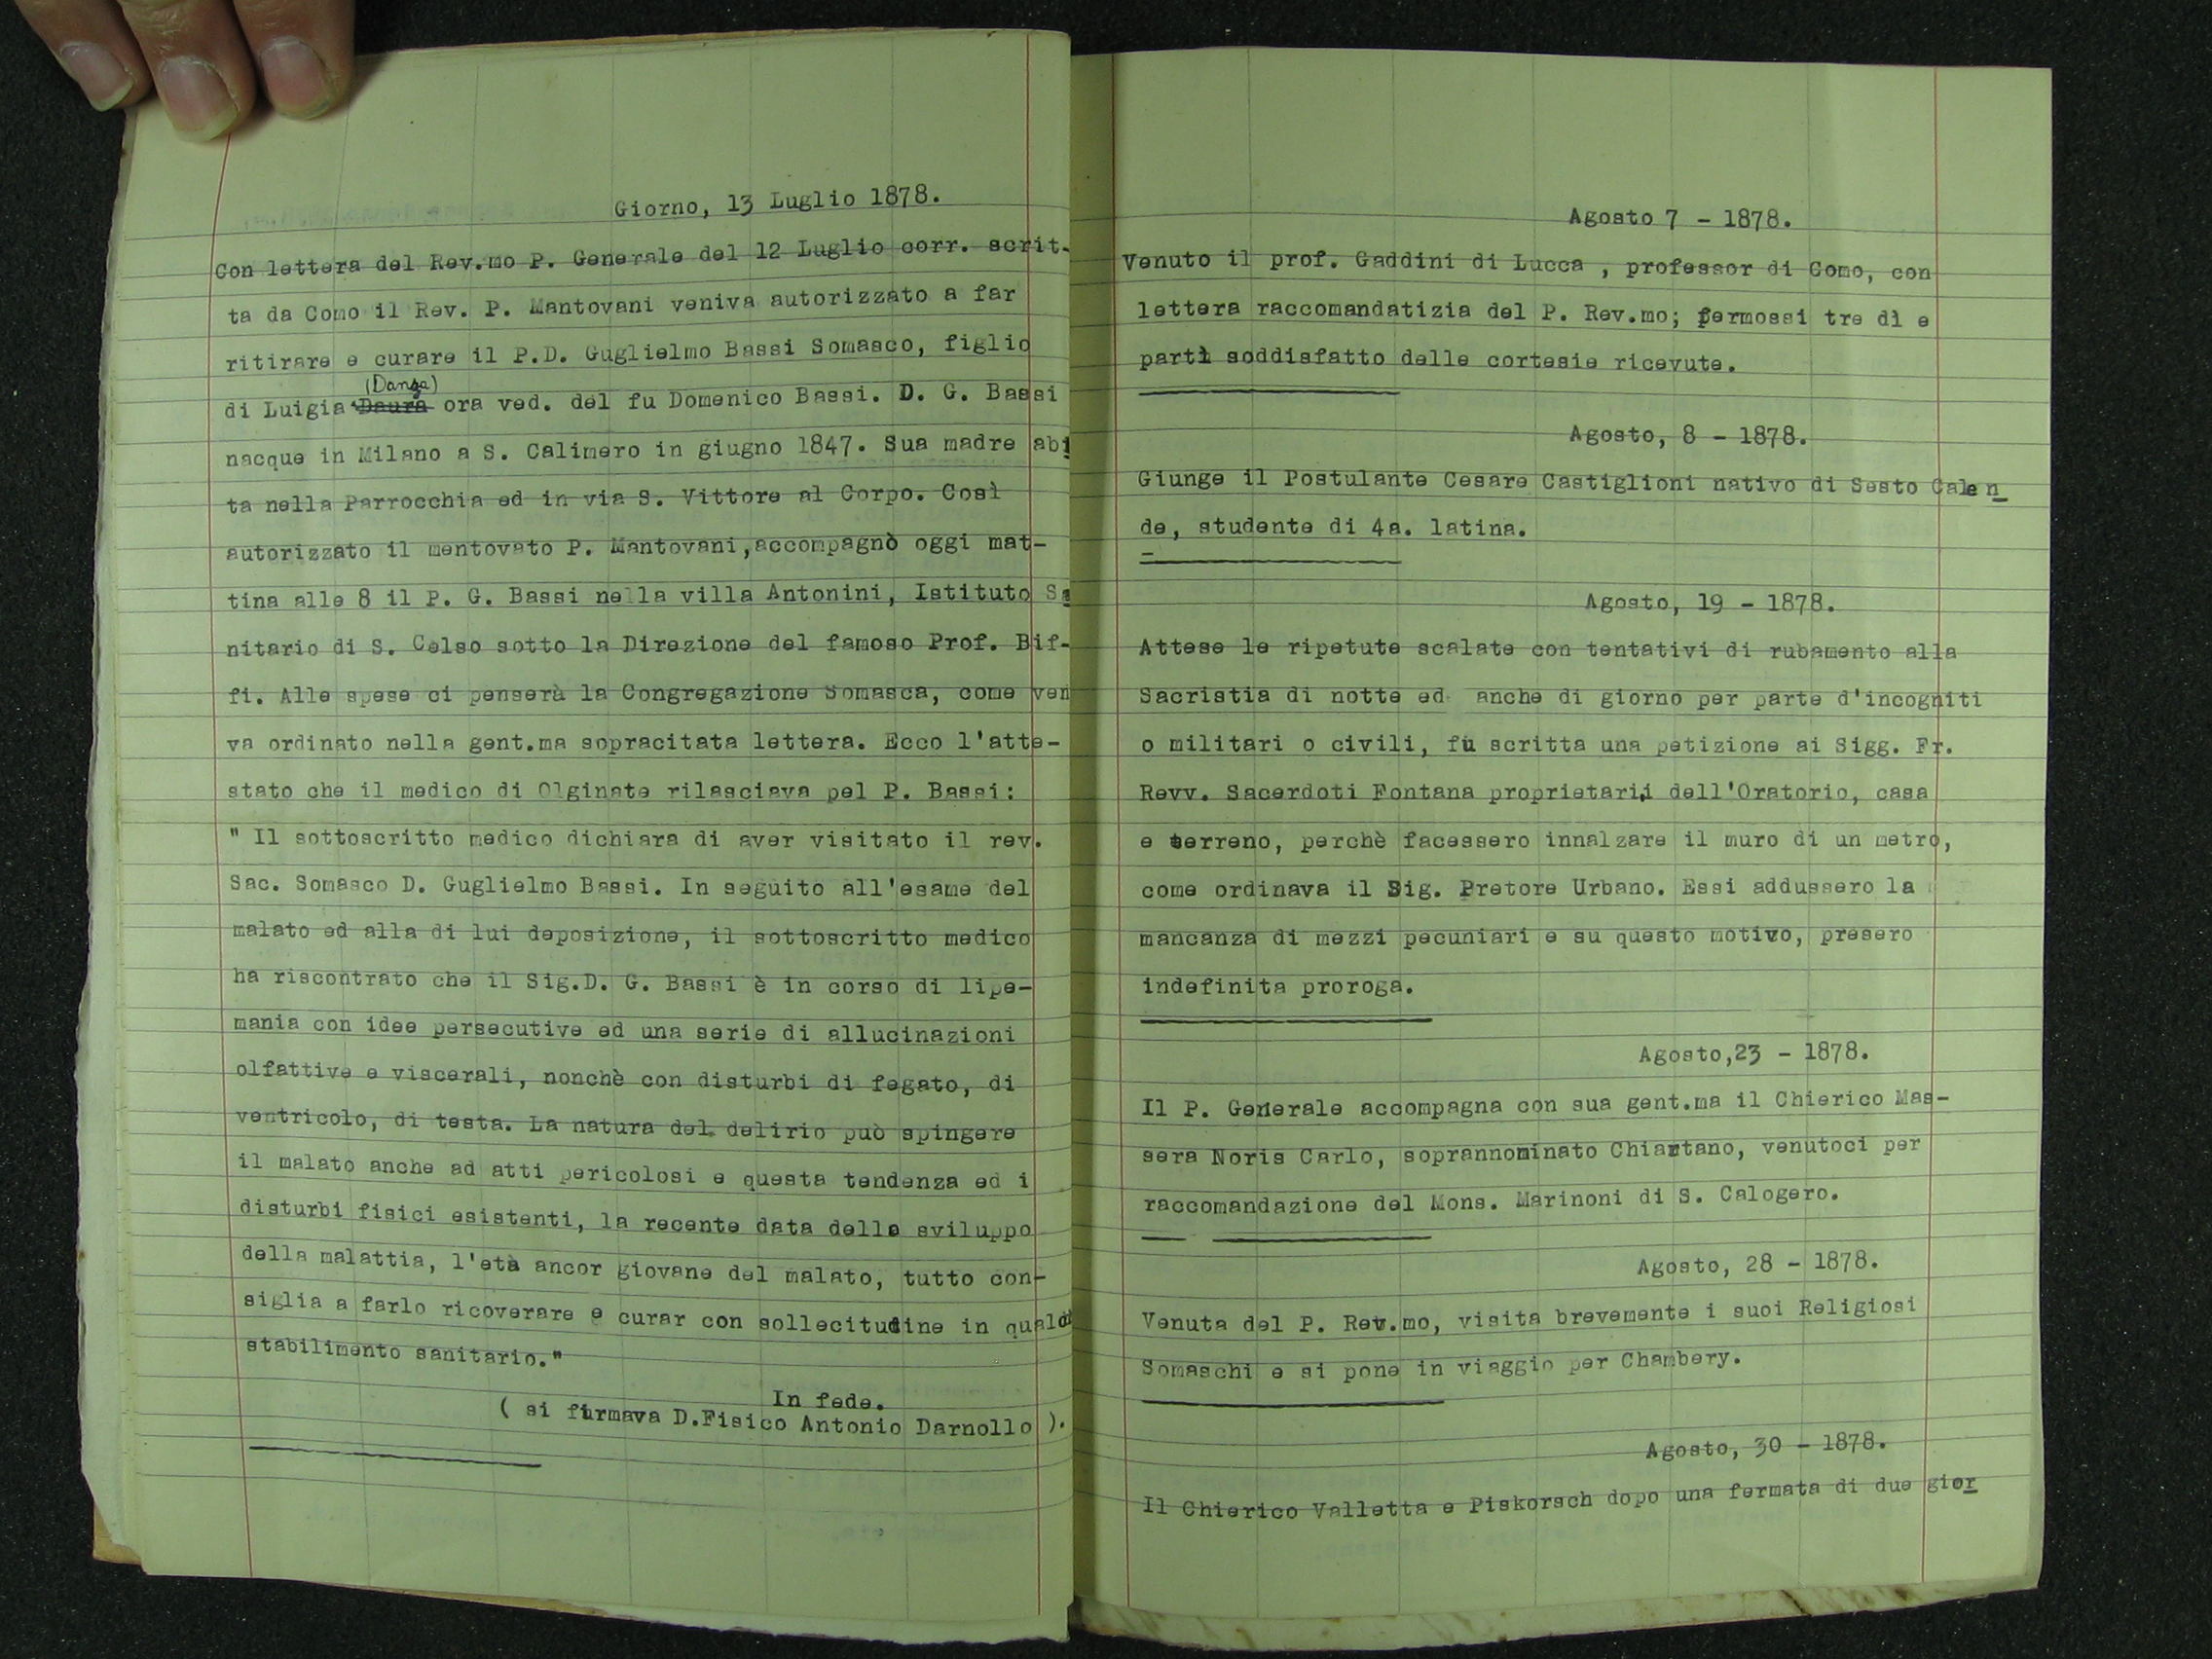 Giorno, 13 Luglio 1878.
Con lettera del Rev.mo P. Generale del 12 Luglio corr. scrit-
ta da Como il Rev. P. Mantovani veniva autorizzato a far
ritirare e curare il P.D. Guglielmo Bassi Somasco, figlio
(Danza)
di Luigia Daura ora ved. del fu Domenico Bassi. D. G. Bassi
nacque in Milano a S. Calimero in giugno 1847. Sua madre abi
ta nella Parrocchia ed in via S. Vittore al Corpo. Così
autorizzato il mentovato P. Mantovani,accompagnò oggi mat-
tina alle 8 il P. G. Bassi nella villa Antonini, Istituto Sa
nitario di S. Celso sotto la Direzione del famoso Prof. Bif-
fi. Alle spese ci penserà la Congregazione Somasca, come ven
va ordinato nella gent.ma sopracitata lettera. Ecco l'atte-
stato che il medico di Olginate rilasciava pel P. Bassi:
" Il sottoscritto medico dichiara di aver visitato il rev.
Sac. Somasco D. Guglielmo Bassi. In seguito all'esame del
malato ed alla di lui deposizione, il sottoscritto medico
ha riscontrato che il Sig.D. G. Bassi è in corso di lipe-
mania con idee persecutive ed una serie di allucinazioni
olfattive e viscerali, nonchè con disturbi di fegato, di
ventricolo, di testa. La natura del delirio può spingere
il malato anche ad atti pericolosi e questa tendenza ed i
disturbi fisici esistenti, la recente data dello sviluppo
della malattia, l'età ancor giovane del malato, tutto con-
siglia a farlo ricoverare e curar con sollecitudine in
stabilimento sanitario."
In fede.
( si firmava D.Fisico Antonio Darnollo ).
Agosto 7 - 1878.
Venuto il prof. Gaddini di Lucca , professor di Como, con
lettera raccomandatizia del P. Rev.mo; fermossi tre dì e
partì soddisfatto delle cortesie ricevute.
Agosto, 8 - 1878.
Giunge il Postulante Cesare Castiglioni nativo di Sesto Calen
de, studente di 4a. latina.
Agosto, 19 - 1878.
Attese le ripetute scalate con tentativi di rubamento alla
Sacristia di notte ed anche di giorno per parte d'incogniti
o militari o civili, fù scritta una petizione ai Sigg. Fr.
Revv. Sacerdoti Fontana proprietarii dell'Oratorio, casa
e terreno, perchè facessero innalzare il muro di un metro,
come ordinava il Sig. Pretore Urbano. Essi addussero la
mancanza di mezzi pecuniari e su questo motivo, presero
indefinita proroga.
Agosto,23 - 1878.
Il P. Generale accompagna con sua gent.ma il Chierico Mas-
sera Noris Carlo, soprannominato Chiartano, venutoci per
raccomandazione del Mons. Marinoni di S. Calogero.
Agosto, 28 - 1878.
Venuta del P. Rev.mo, visita brevemente i suoi Religiosi
Somaschi e si pone in viaggio per Chambery.
Agosto, 30 - 1878.
Il Chierico Valletta e Piskorsch dopo una fermata di due gior